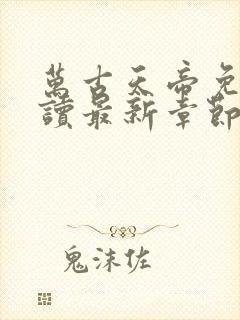 萬古天帝免
讀最新章節
鬼沫佐